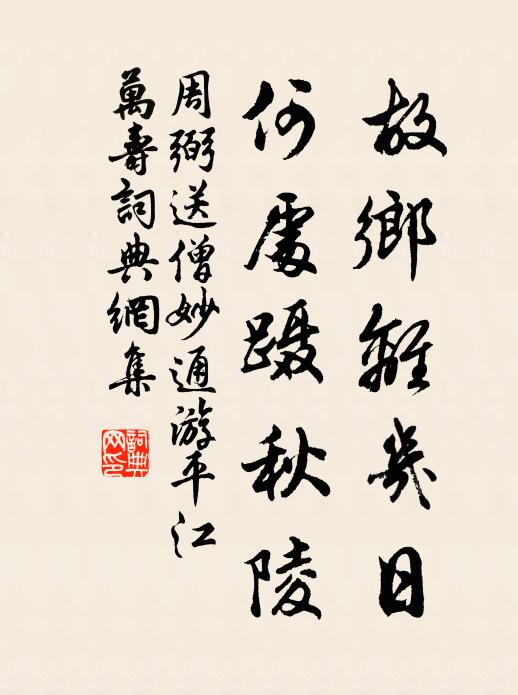 故鄉離幾日
何處躡秋陵
周弼送僧妙通游平江
萬壽詞典網集
詞典网印